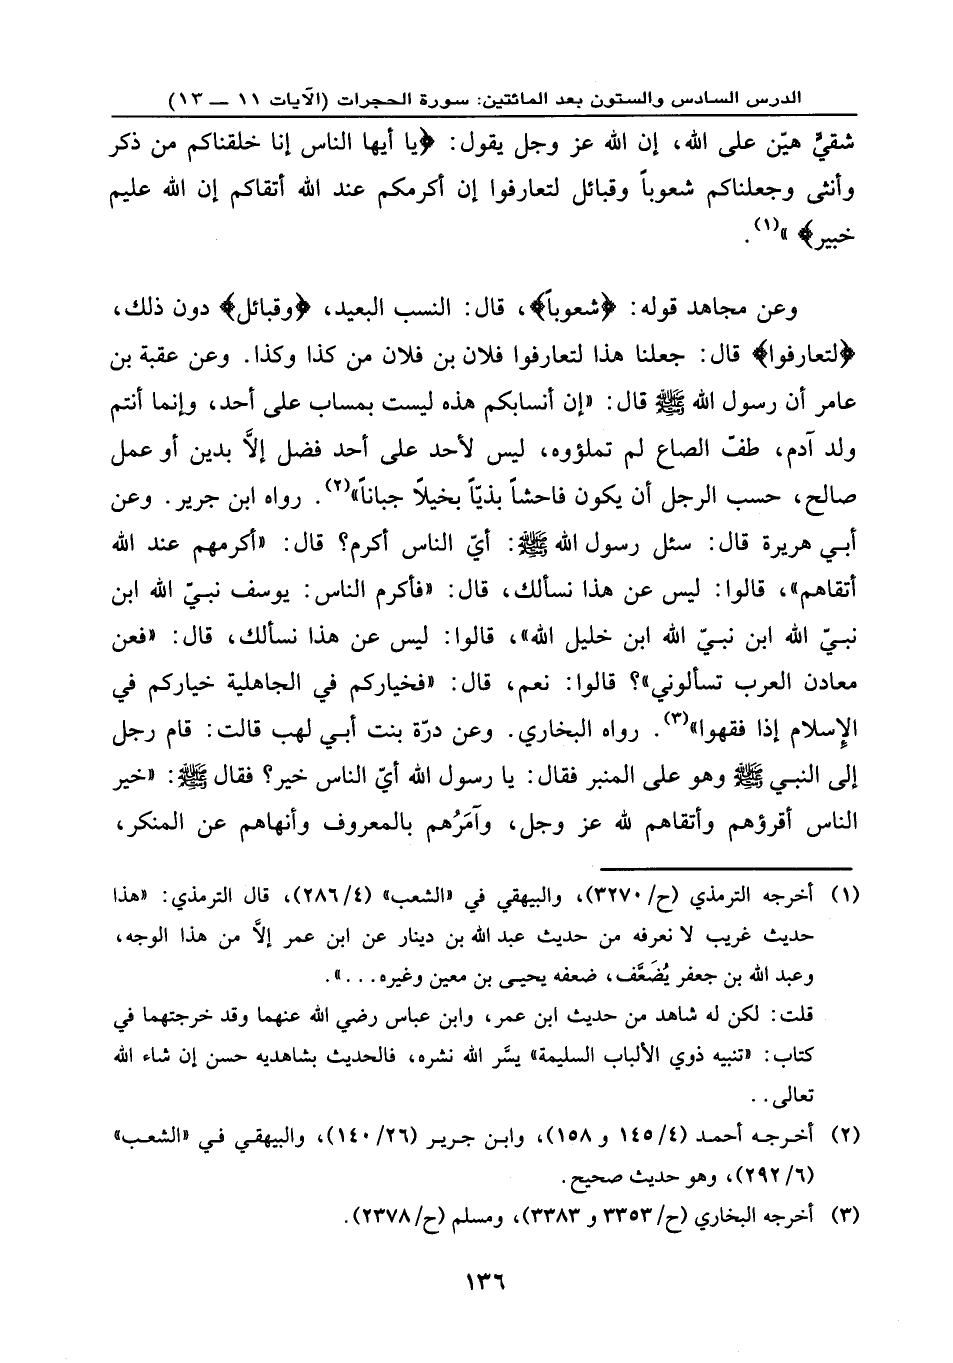 الدرس السادس والستون بعد المائتين: سورة الحجرات (الآيات ١١ ــ ١٣)
شقيٌّ هيّن على الله، إن الله عز وجل يقول: ﴿يا أيها الناس إنا خلقناكم من ذكر
وأنثى وجعلناكم شعوباً وقبائل لتعارفوا إن أكرمكم عند الله أتقاكم إن الله عليم
خبير﴾ »(١).
وعن مجاهد قوله: ﴿شعوباً﴾، قال: النسب البعيد، ﴿وقبائل﴾ دون ذلك،
﴿لتعارفوا﴾ قال: جعلنا هذا لتعارفوا فلان بن فلان من كذا وكذا. وعن عقبة بن
عامر أن رسول الله ﷺ قال: «إن أنسابكم هذه ليست بمساب على أحد، وإنما أنتم
ولد آدم، طفّ الصاع لم تملؤوه، ليس لأحد على أحد فضل إلاَّ بدين أو عمل
صالح، حسب الرجل أن يكون فاحشاً بذيّاً بخيلاً جباناً»(٢). رواه ابن جرير. وعن
أبي هريرة قال: سئل رسول الله ﷺ: أيّ الناس أكرم؟ قال: «أكرمهم عند الله
أتقاهم»، قالوا: ليس عن هذا نسألك، قال: «فأكرم الناس: يوسف نبيّ الله ابن
نبيّ الله ابن نبيّ الله ابن خليل الله»، قالوا: ليس عن هذا نسألك، قال: «فعن
معادن العرب تسألوني»؟ قالوا: نعم، قال: «فخياركم في الجاهلية خياركم في
الإسلام إذا فقهوا»(٣). رواه البخاري. وعن درّة بنت أبي لهب قالت: قام رجل
إلى النبي ﷺ وهو على المنبر فقال: يا رسول الله أيّ الناس خير؟ فقال ﷺ: «خير
الناس أقرؤهم وأتقاهم لله عز وجل، وآمَرُهم بالمعروف وأنهاهم عن المنكر،
(١) أخرجه الترمذي (ح/ ٣٢٧٠)، والبيهقي في «الشعب» (٤/ ٢٨٦)، قال الترمذي: «هذا
حديث غريب لا نعرفه من حديث عبد الله بن دينار عن ابن عمر إلاَّ من هذا الوجه،
وعبد الله بن جعفر يُضَعَّف، ضعفه يحيى بن معين وغيره...».
قلت: لكن له شاهد من حديث ابن عمر، وابن عباس رضي الله عنهما وقد خرجتهما في
كتاب: «تنبيه ذوي الألباب السليمة» يسَّر الله نشره، فالحديث بشاهديه حسن إن شاء الله
تعالى..
(٢) أخرجه أحمد (٤/ ١٤٥ و ١٥٨)، وابن جرير (٢٦/ ١٤٠)، والبيهقي في «الشعب»
(٦/ ٢٩٢)، وهو حديث صحيح.
(٣) أخرجه البخاري (ح/ ٣٣٥٣ و ٣٣٨٣)، ومسلم (ح/ ٢٣٧٨).
١٣٦